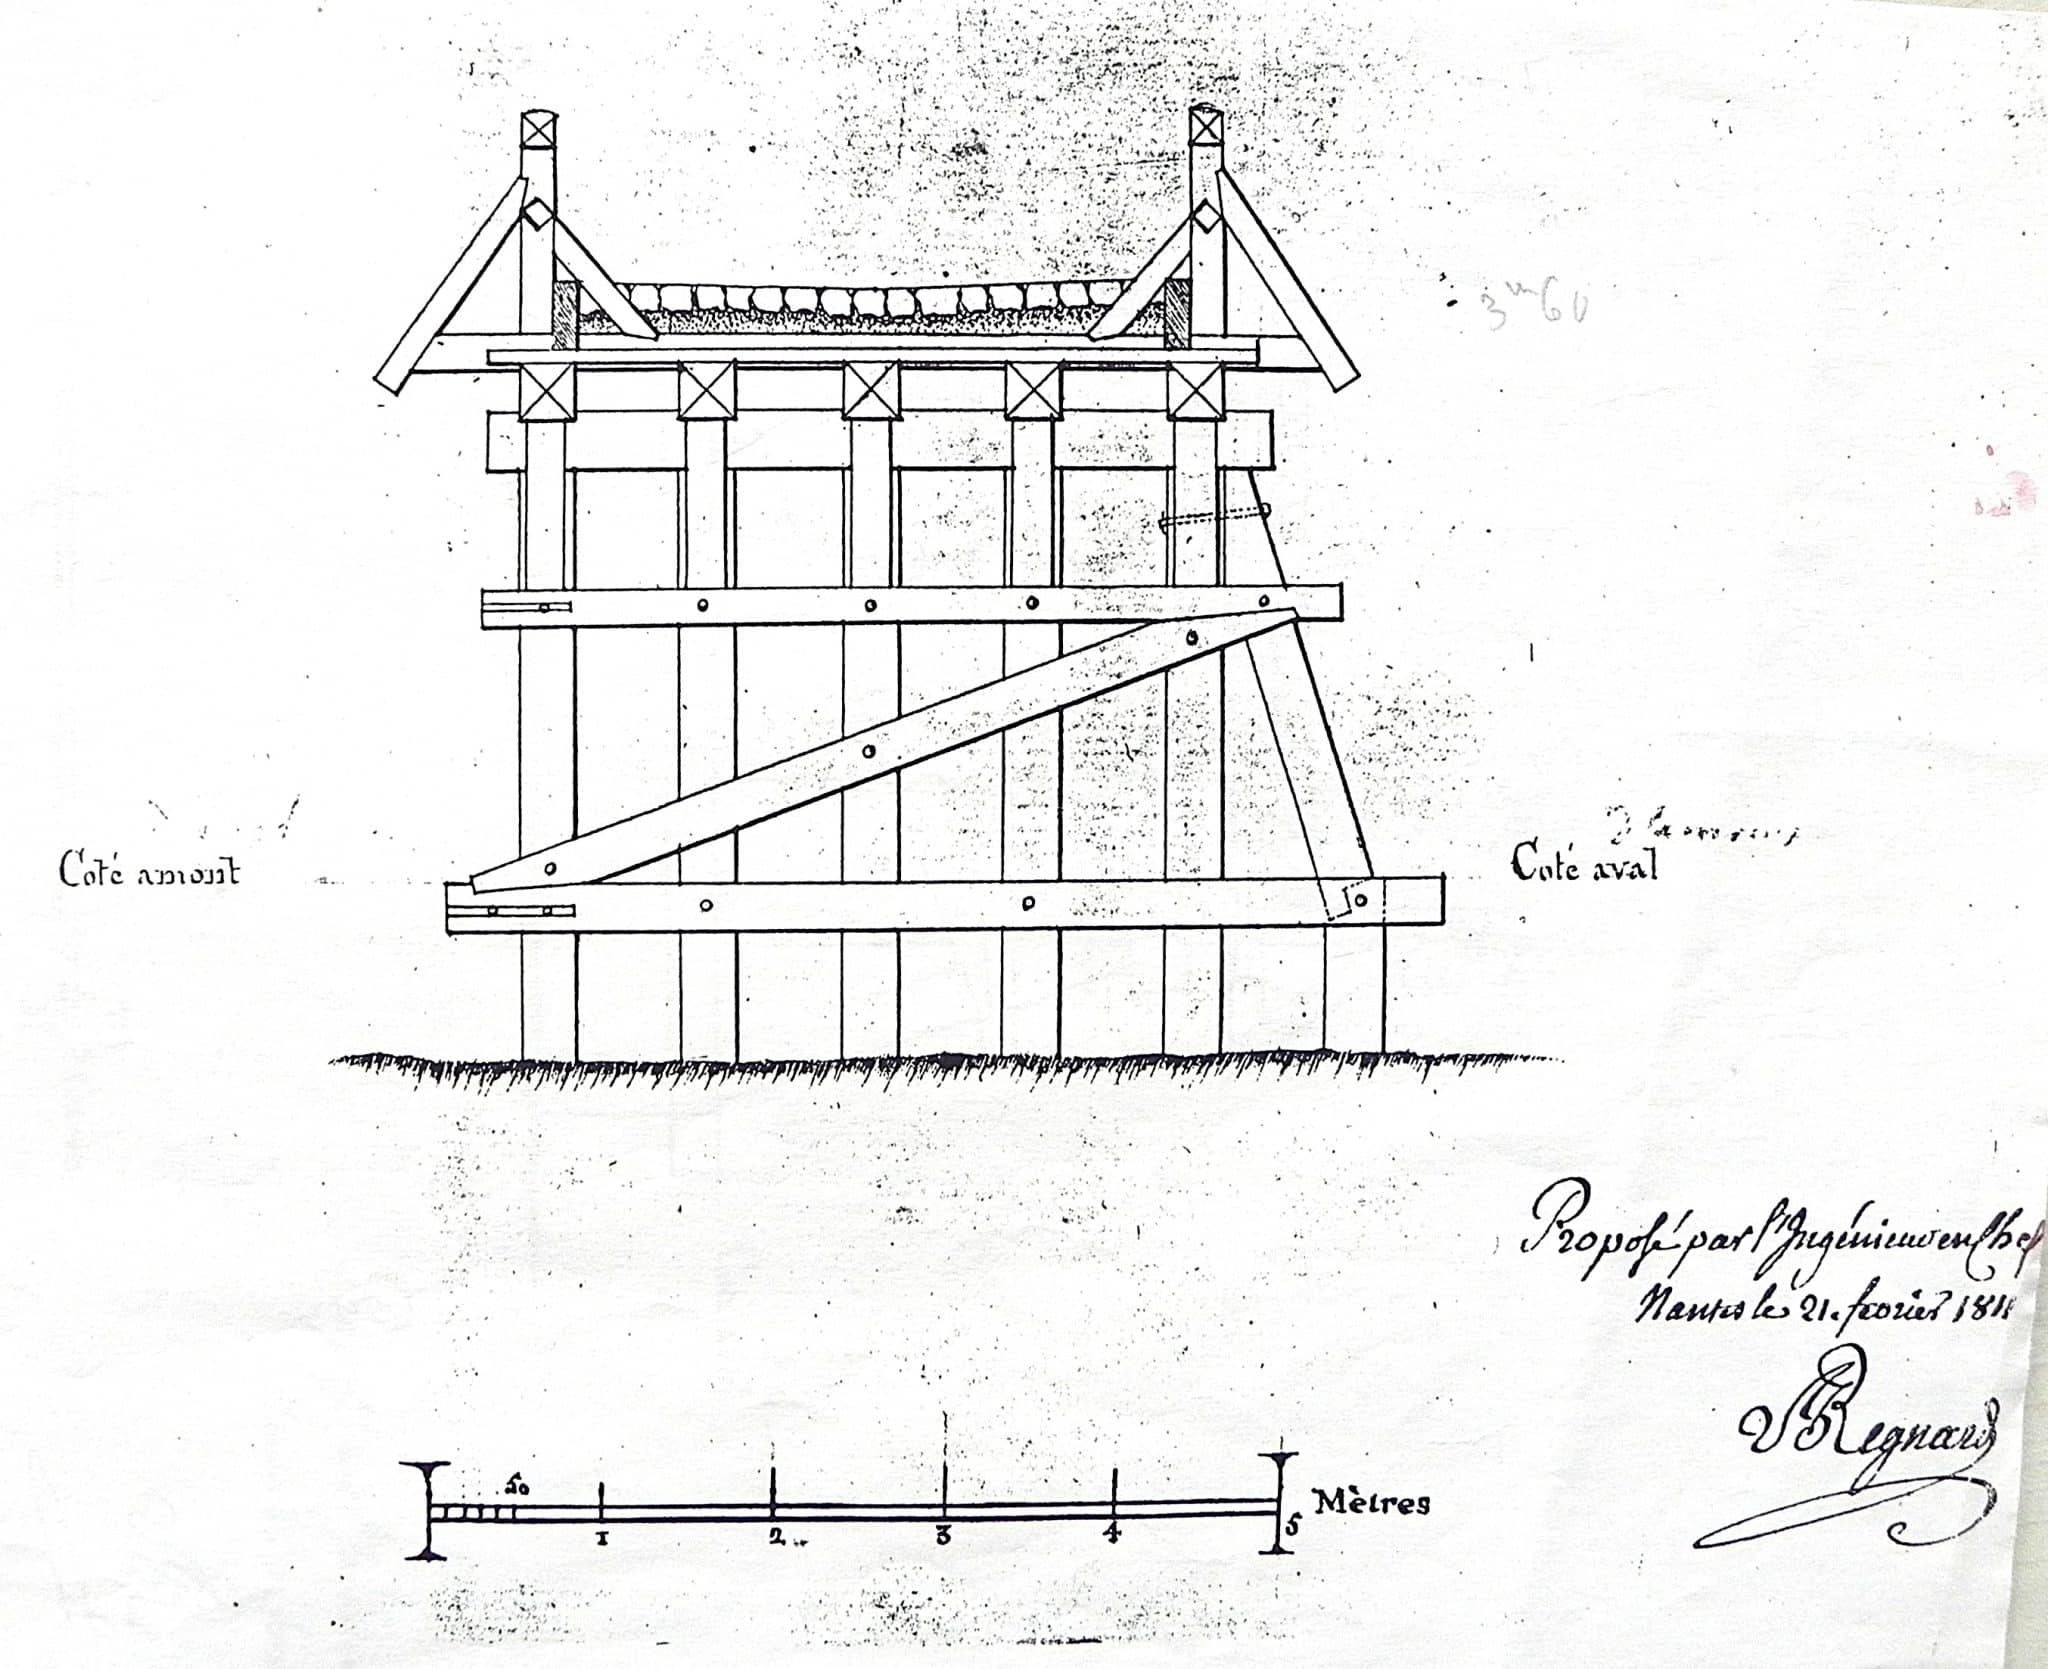 3m60
Coté amont
Coté aval
Proposé par l'Ingénieur en Chef
Nantes le 21. février 181
Regnard
50
1 2 3 4 5 Mètres